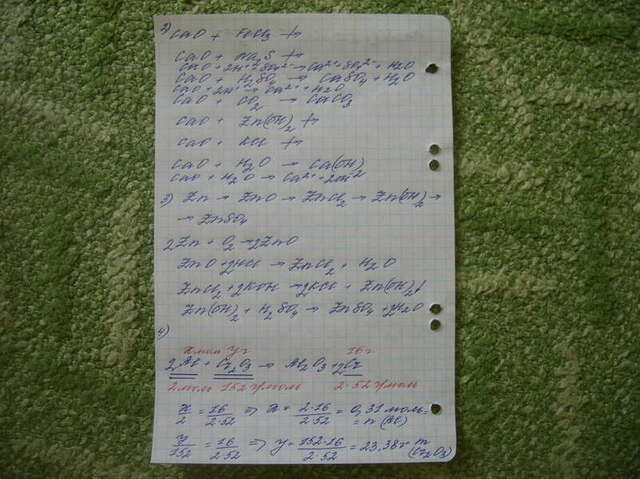 2) CaO + FeCl₃ ↛
CaO + Na₂S ↛
CaO + 2H⁺ + SO₄²⁻ → Ca²⁺ + SO₄²⁻ + H₂O
CaO + H₂SO₄ → CaSO₄ + H₂O
CaO + 2H⁺ → Ca²⁺ + H₂O
CaO + CO₂ → CaCO₃
CaO + Zn(OH)₂ ↛
CaO + KCl ↛
CaO + H₂O → Ca(OH)
CaO + H₂O → Ca²⁺ + 2OH⁻
3) Zn → ZnO → ZnCl₂ → Zn(OH)₂ →
→ ZnSO₄
2Zn + O₂ → 2ZnO
ZnO + 2HCl → ZnCl₂ + H₂O
ZnCl₂ + 2KOH → 2KCl + Zn(OH)₂↓
Zn(OH)₂ + H₂SO₄ → ZnSO₄ + 2H₂O
4)
x моль y г 16 г
2Al + Cr₂O₃ → Al₂O₃ + 2Cr
2 моль 152 г/моль 2·52 г/моль
x/2 = 16/2·52 ⇒ x = 2·16/2·52 = 0,31 моль =
= n (Al)
y/152 = 16/2·52 ⇒ y = 152·16/2·52 = 23,38 г m
(Cr₂O₃)